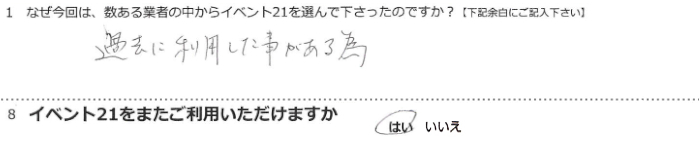 1 なぜ今回は、数ある業者の中からイベント21を選んで下さったのですか？【下記余白にご記入下さい】
過去に利用した事がある為
8 イベント21をまたご利用いただけますか
はい いいえ